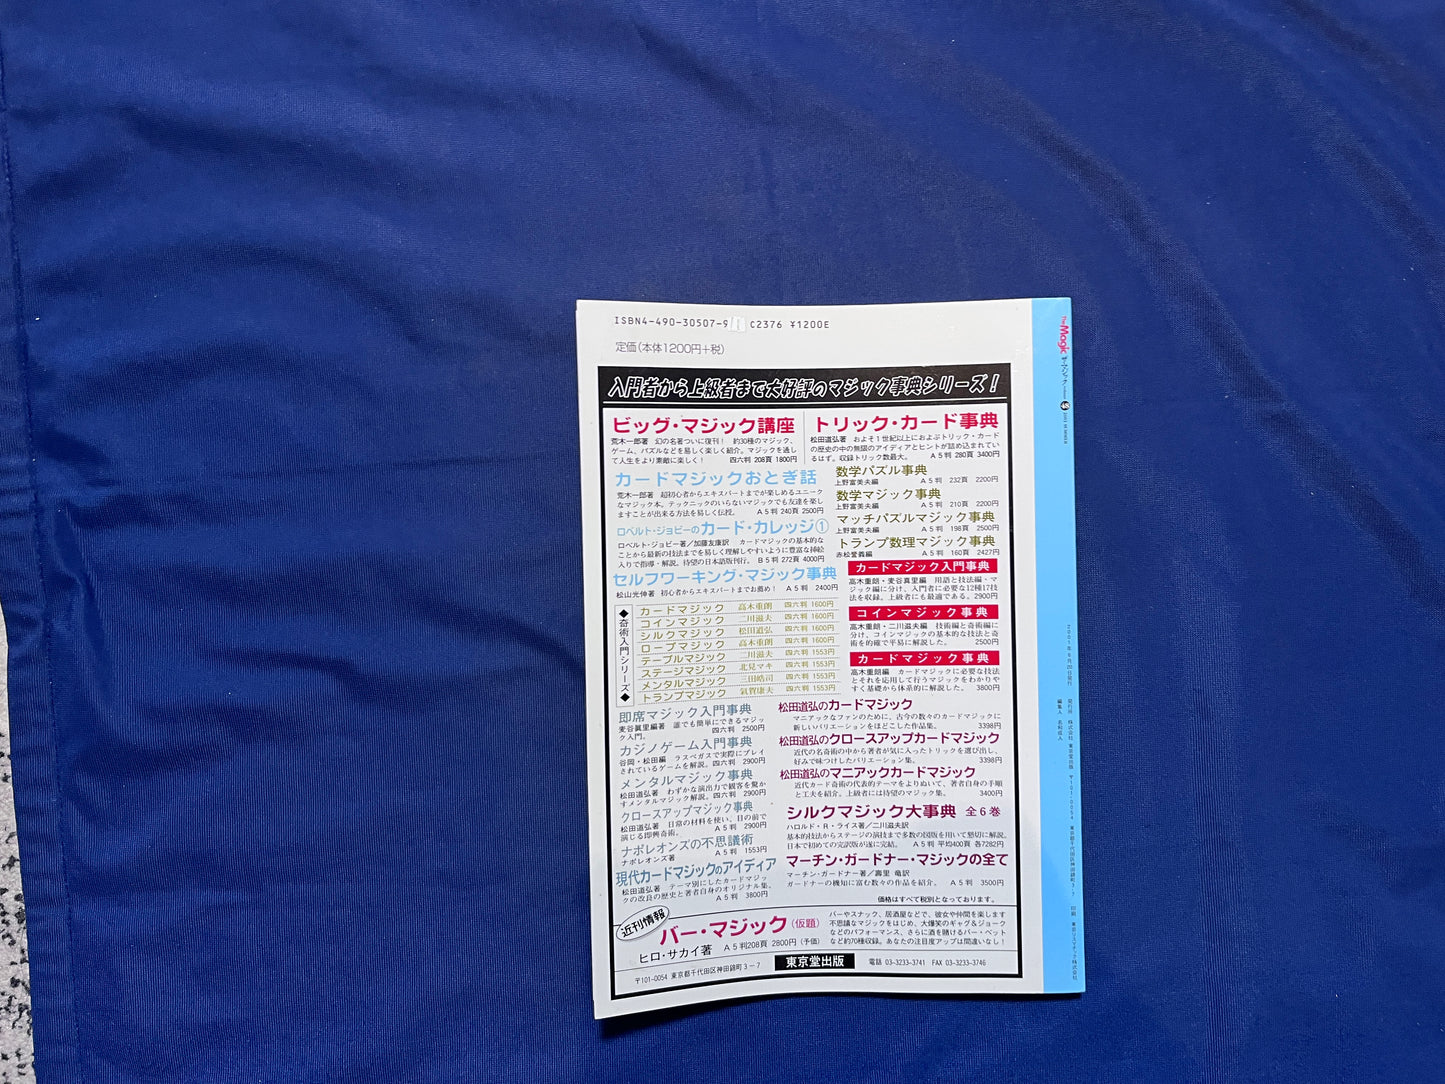 ISBN4-490-30507-9 C2376 ¥1200E
定価(本体1200円+税)
入門者から上級者まで大好評のマジック事典シリーズ！
ビッグ・マジック講座
荒木一郎著 幻の名著ついに復刊！ 約30種のマジック、
ゲーム、パズルなどを易しく楽しく紹介。マジックを通し
て人生をより素敵に楽しく！ 四六判 208頁 1800円
トリック・カード事典
松田道弘著 およそ1世紀以上におよぶトリック・カード
の歴史の中の無限のアイディアとヒントが詰め込まれてい
るはず。収録トリック数最大。 A5判 280頁 3400円
カードマジックおとぎ話
荒木一郎著 超初心者からエキスパートまでが楽しめるユニーク
なマジック本。テクニックのいらないマジックでも友達を楽し
ますことが出来る方法を易しく伝授。 A5判 240頁 2500円
ロベルト・ジョビーのカード・カレッジ①
ロベルト・ジョビー著／加藤友康訳 カードマジックの基本的な
ことから最新の技法までを易しく理解しやすいように豊富な挿絵
入りで指導・解説。待望の日本語版刊行。 B5判 272頁 4000円
セルフワーキング・マジック事典
松山光伸著 初心者からエキスパートまでお薦め！ A5判 2400円
数学パズル事典
上野富美夫編 A5判 232頁 2200円
数学マジック事典
上野富美夫編 A5判 210頁 2200円
マッチパズルマジック事典
上野富美夫編 A5判 198頁 2500円
トランプ数理マジック事典
赤松愛義編 A5判 160頁 2427円
カードマジック入門事典
高木重朗・麦谷真里編 用語と技法編・マ
ジック編に分け、入門者に必要な12種17技
法を収録。上級者にも最適である。2900円
コインマジック事典
高木重朗・二川滋夫編 技術編と奇術編に
分け、コインマジックの基本的な技法と奇
術を的確で平易に解説した。 2500円
カードマジック事典
高木重朗編 カードマジックに必要な技法
とそれを応用して行うマジックをわかりや
すく基礎から体系的に解説した。 3800円
◆奇術入門シリーズ◆
カードマジック 高木重朗 四六判 1600円
コインマジック 二川滋夫 四六判 1600円
シルクマジック 松田道弘 四六判 1600円
ロープマジック 高木重朗 四六判 1600円
テーブルマジック 二川滋夫 四六判 1553円
ステージマジック 北見マキ 四六判 1553円
メンタルマジック 三田皓司 四六判 1553円
トランプマジック 氣賀康夫 四六判 1553円
即席マジック入門事典
麦谷眞里編著 誰でも簡単にできるマジッ
ク入門。 四六判 2500円
カジノゲーム入門事典
谷岡・松田編 ラスベガスで実際にプレイ
されているゲームを解説。四六判 2900円
メンタルマジック事典
松田道弘著 わずかな演出力で観客を驚か
すメンタルマジック解説。四六判 2900円
クロースアップマジック事典
松田道弘著 日常の材料を使い、目の前で
演じる即興奇術。 A5判 2900円
ナポレオンズの不思議術
ナポレオンズ著 A5判 1553円
現代カードマジックのアイディア
松田道弘著 テーマ別にしたカードマジッ
クの改良の歴史と著者自身のオリジナル集。
A5判 3800円
松田道弘のカードマジック
マニアックなファンのために、古今の数々のカードマジックに
新しいバリエーションをほどこした作品集。 3398円
松田道弘のクロースアップカードマジック
近代の名奇術の中から著者が気に入ったトリックを選び出し、
好みで味つけしたバリエーション集。 3398円
松田道弘のマニアックカードマジック
近代カード奇術の代表的テーマをよりぬいて、著者自身の手順
と工夫を紹介。上級者には待望のマジック集。 3400円
シルクマジック大事典 全6巻
ハロルド・R・ライス著／二川滋夫訳
基本的技法からステージの演技まで多数の図版を用いて懇切に解説。
日本で初めての完訳版が遂に完結。 A5判 平均400頁 各7282円
マーチン・ガードナー・マジックの全て
マーチン・ガードナー著／壽里 竜訳
ガードナーの機知に富む数々の作品を紹介。 A5判 3500円
価格はすべて税別となっております。
近刊情報
バー・マジック(仮題)
ヒロ・サカイ著 A5判208頁 2800円(予価)
バーやスナック、居酒屋などで、彼女や仲間を楽します
不思議なマジックをはじめ、大爆笑のギャグ＆ジョーク
などのパフォーマンス、さらに酒を賭けるバー・ベット
など約70種収録。あなたの注目度アップは間違いなし！
〒101-0054 東京都千代田区神田錦町3-7 東京堂出版 電話 03-3233-3741 FAX 03-3233-3746
The Magic ザ・マジック
2001年6月20日発行
編集人 名和成人
発行所 株式会社 東京堂出版 〒101-0054 東京都千代田区神田錦町3-7 印刷 東京リスマチック株式会社